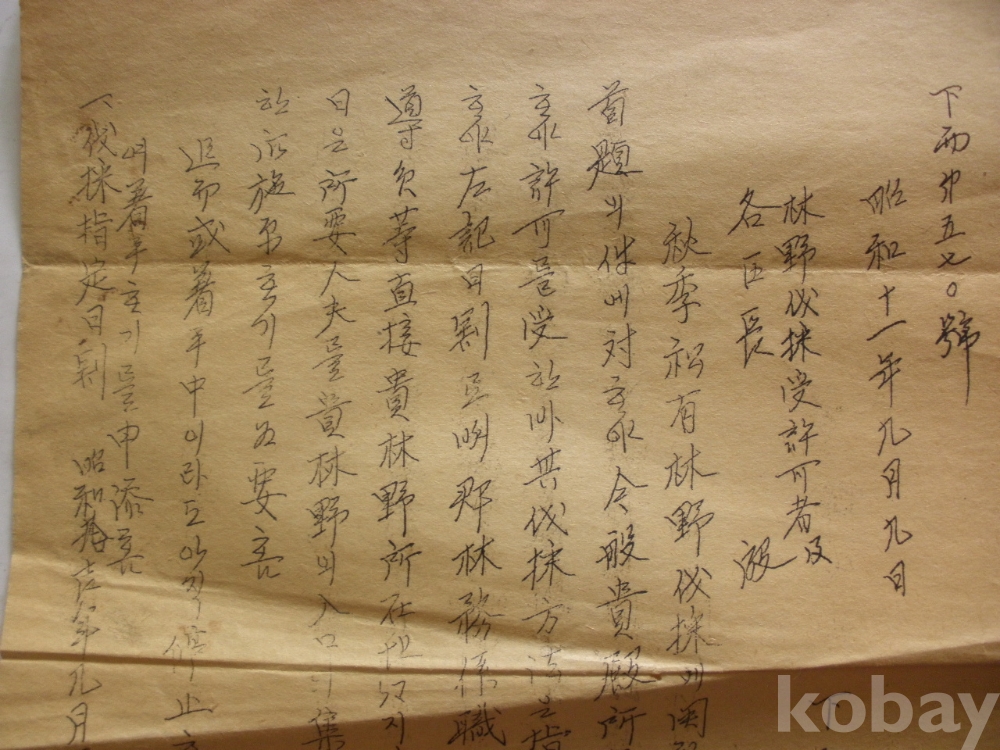 下面第五七〇號
昭和十一年九月九日
林野伐採受許可者及
各區長 殿
秋季私有林野伐採에関
首題의件에対하야今般貴殿所
하야許可를受하바其伐採方法을指
하야左記日割로明郡林務係職
導員等直接貴林野所在地까지
日은所要人夫를貴林野의入口에集
하야施行하기를為要홈
追而或着手中이라도아즉停止
에着手하기를申添홈
一、伐採指定日割 昭和十一年九月
kobay